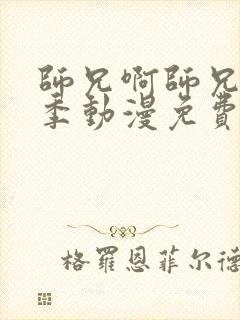 師兄啊師兄
季動漫免費
格羅恩菲尔德